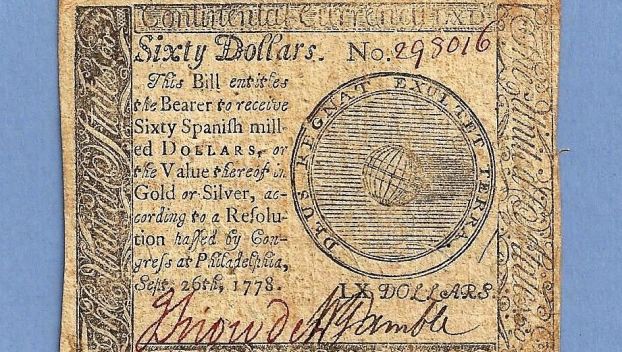 Continental Currency LXD
The United States of
Sixty Dollars. No. 298016
This Bill entitles
the Bearer to receive
Sixty Spaniſh mill
ed DOLLARS, or
the Value thereof in
Gold or Silver, ac-
cording to a Reſolu-
tion paſſed by Con-
greſs at Philadelphia,
Sept. 26th, 1778.
DEUS REGNAT EXULTET TERRA
LX DOLLARS.